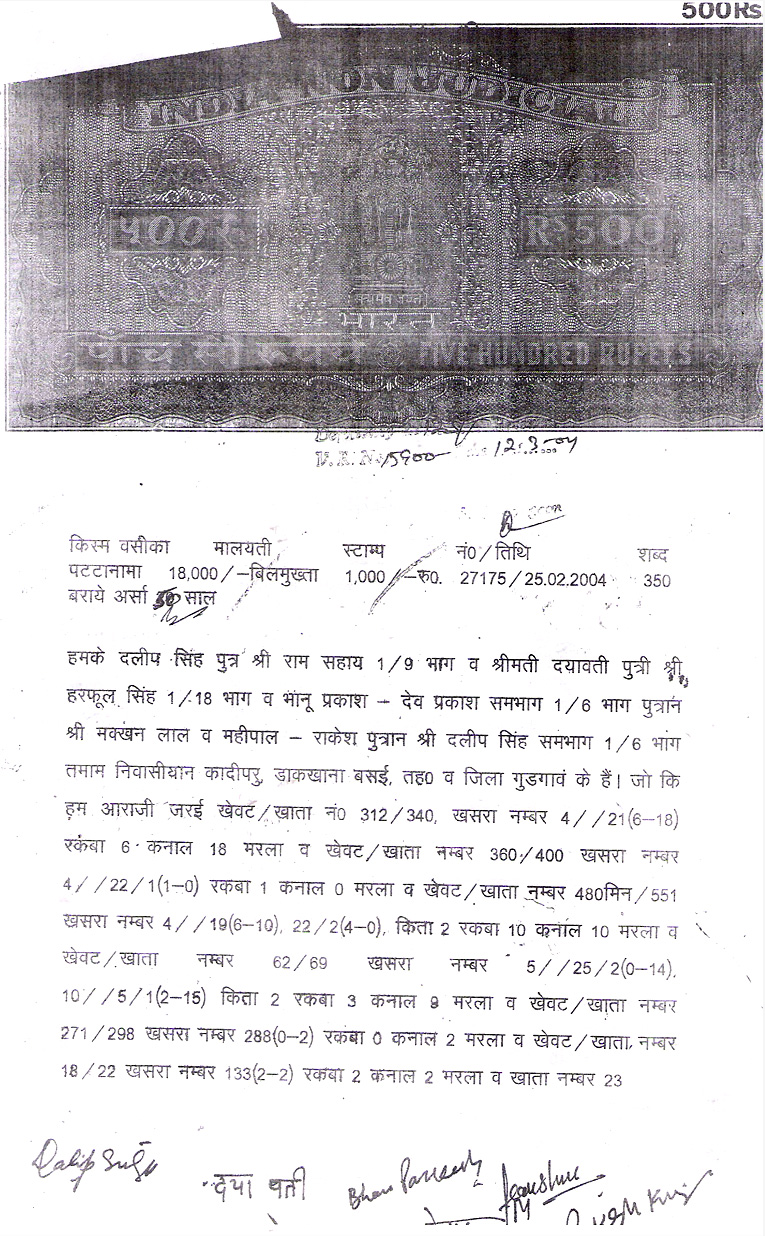 500Rs
INDIA NON JUDICIAL
५००रु
Rs 500
सत्यमेव जयते
भारत
पाँच सौ रूपये
FIVE HUNDRED RUPEES
12.3.04
किस्म वसीका मालयती स्टाम्प नं0/तिथि शब्द
पटटानामा 18,000/–बिलमुख्ता 1,000/–रु0. 27175/25.02.2004 350
बराये अर्सा साल
हमके दलीप सिंह पुत्र श्री राम सहाय 1/9 भाग व श्रीमती दयावती पुत्री श्री
हरफूल सिंह 1/18 भाग व भानू प्रकाश – देव प्रकाश समभाग 1/6 भाग पुत्रान
श्री मक्खन लाल व महीपाल – राकेश पुत्रान श्री दलीप सिंह समभाग 1/6 भाग
तमाम निवासीयान कादीपरु, डाकखाना बसई, तह0 व जिला गुडगावं के हैं। जो कि
हम आराजी जरई खेवट/खाता नं0 312/340, खसरा नम्बर 4//21(6–18)
रकबा 6 कनाल 18 मरला व खेवट/खाता नम्बर 360/400 खसरा नम्बर
4//22/1(1–0) रकबा 1 कनाल 0 मरला व खेवट/खाता नम्बर 480मिन/551
खसरा नम्बर 4//19(6–10), 22/2(4–0), किता 2 रकबा 10 कनाल 10 मरला व
खेवट/खाता नम्बर 62/69 खसरा नम्बर 5//25/2(0–14),
10//5/1(2–15) किता 2 रकबा 3 कनाल 9 मरला व खेवट/खाता नम्बर
271/298 खसरा नम्बर 288(0–2) रकबा 0 कनाल 2 मरला व खेवट/खाता नम्बर
18/22 खसरा नम्बर 133(2–2) रकबा 2 कनाल 2 मरला व खाता नम्बर 23
Dalip Singh दया वती Bhanu Parkash